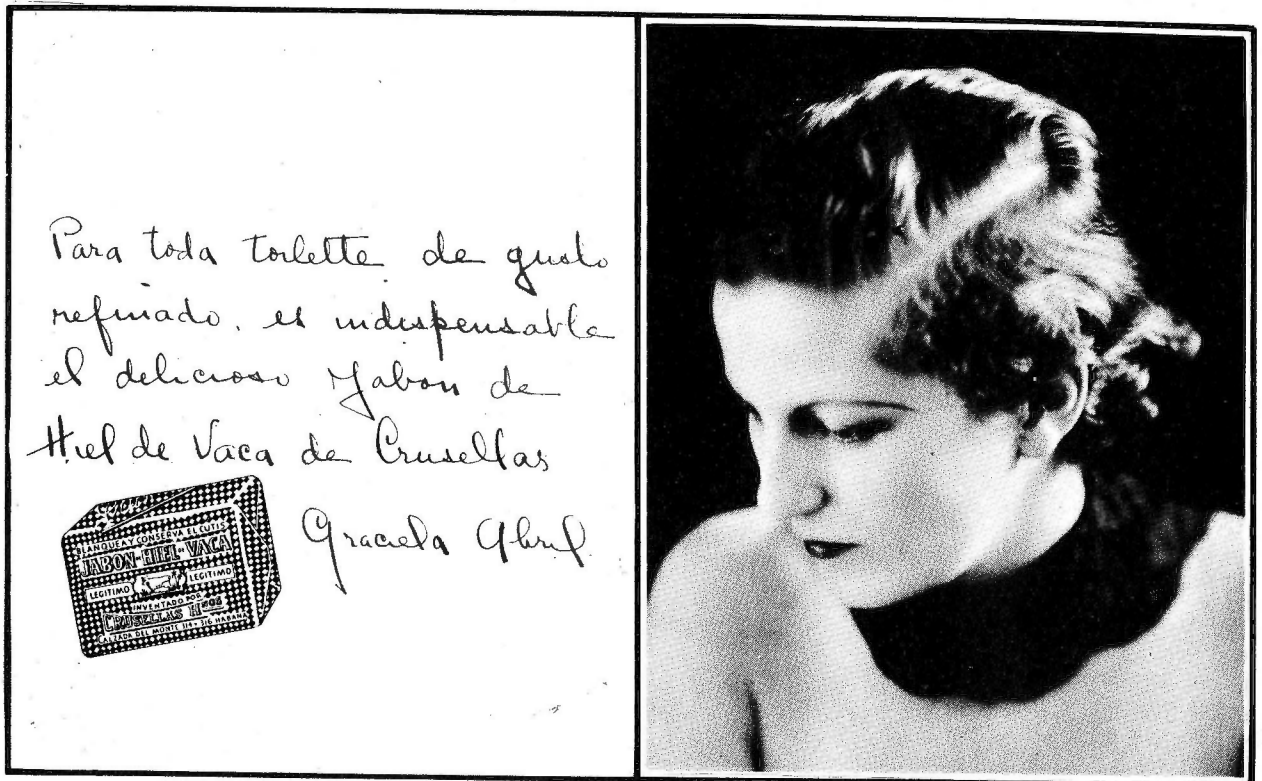 Para toda toilette de gusto
refinado, es indispensable
el delicioso Jabon de
Hiel de Vaca de Crusellas
Graciela Abril
BLANQUEA Y CONSERVA EL CUTIS
JABON-HIEL DE VACA
LEGITIMO LEGITIMO
INVENTADO POR
CRUSELLAS Hnos
CALZADA DEL MONTE 314 Y 316 HABANA